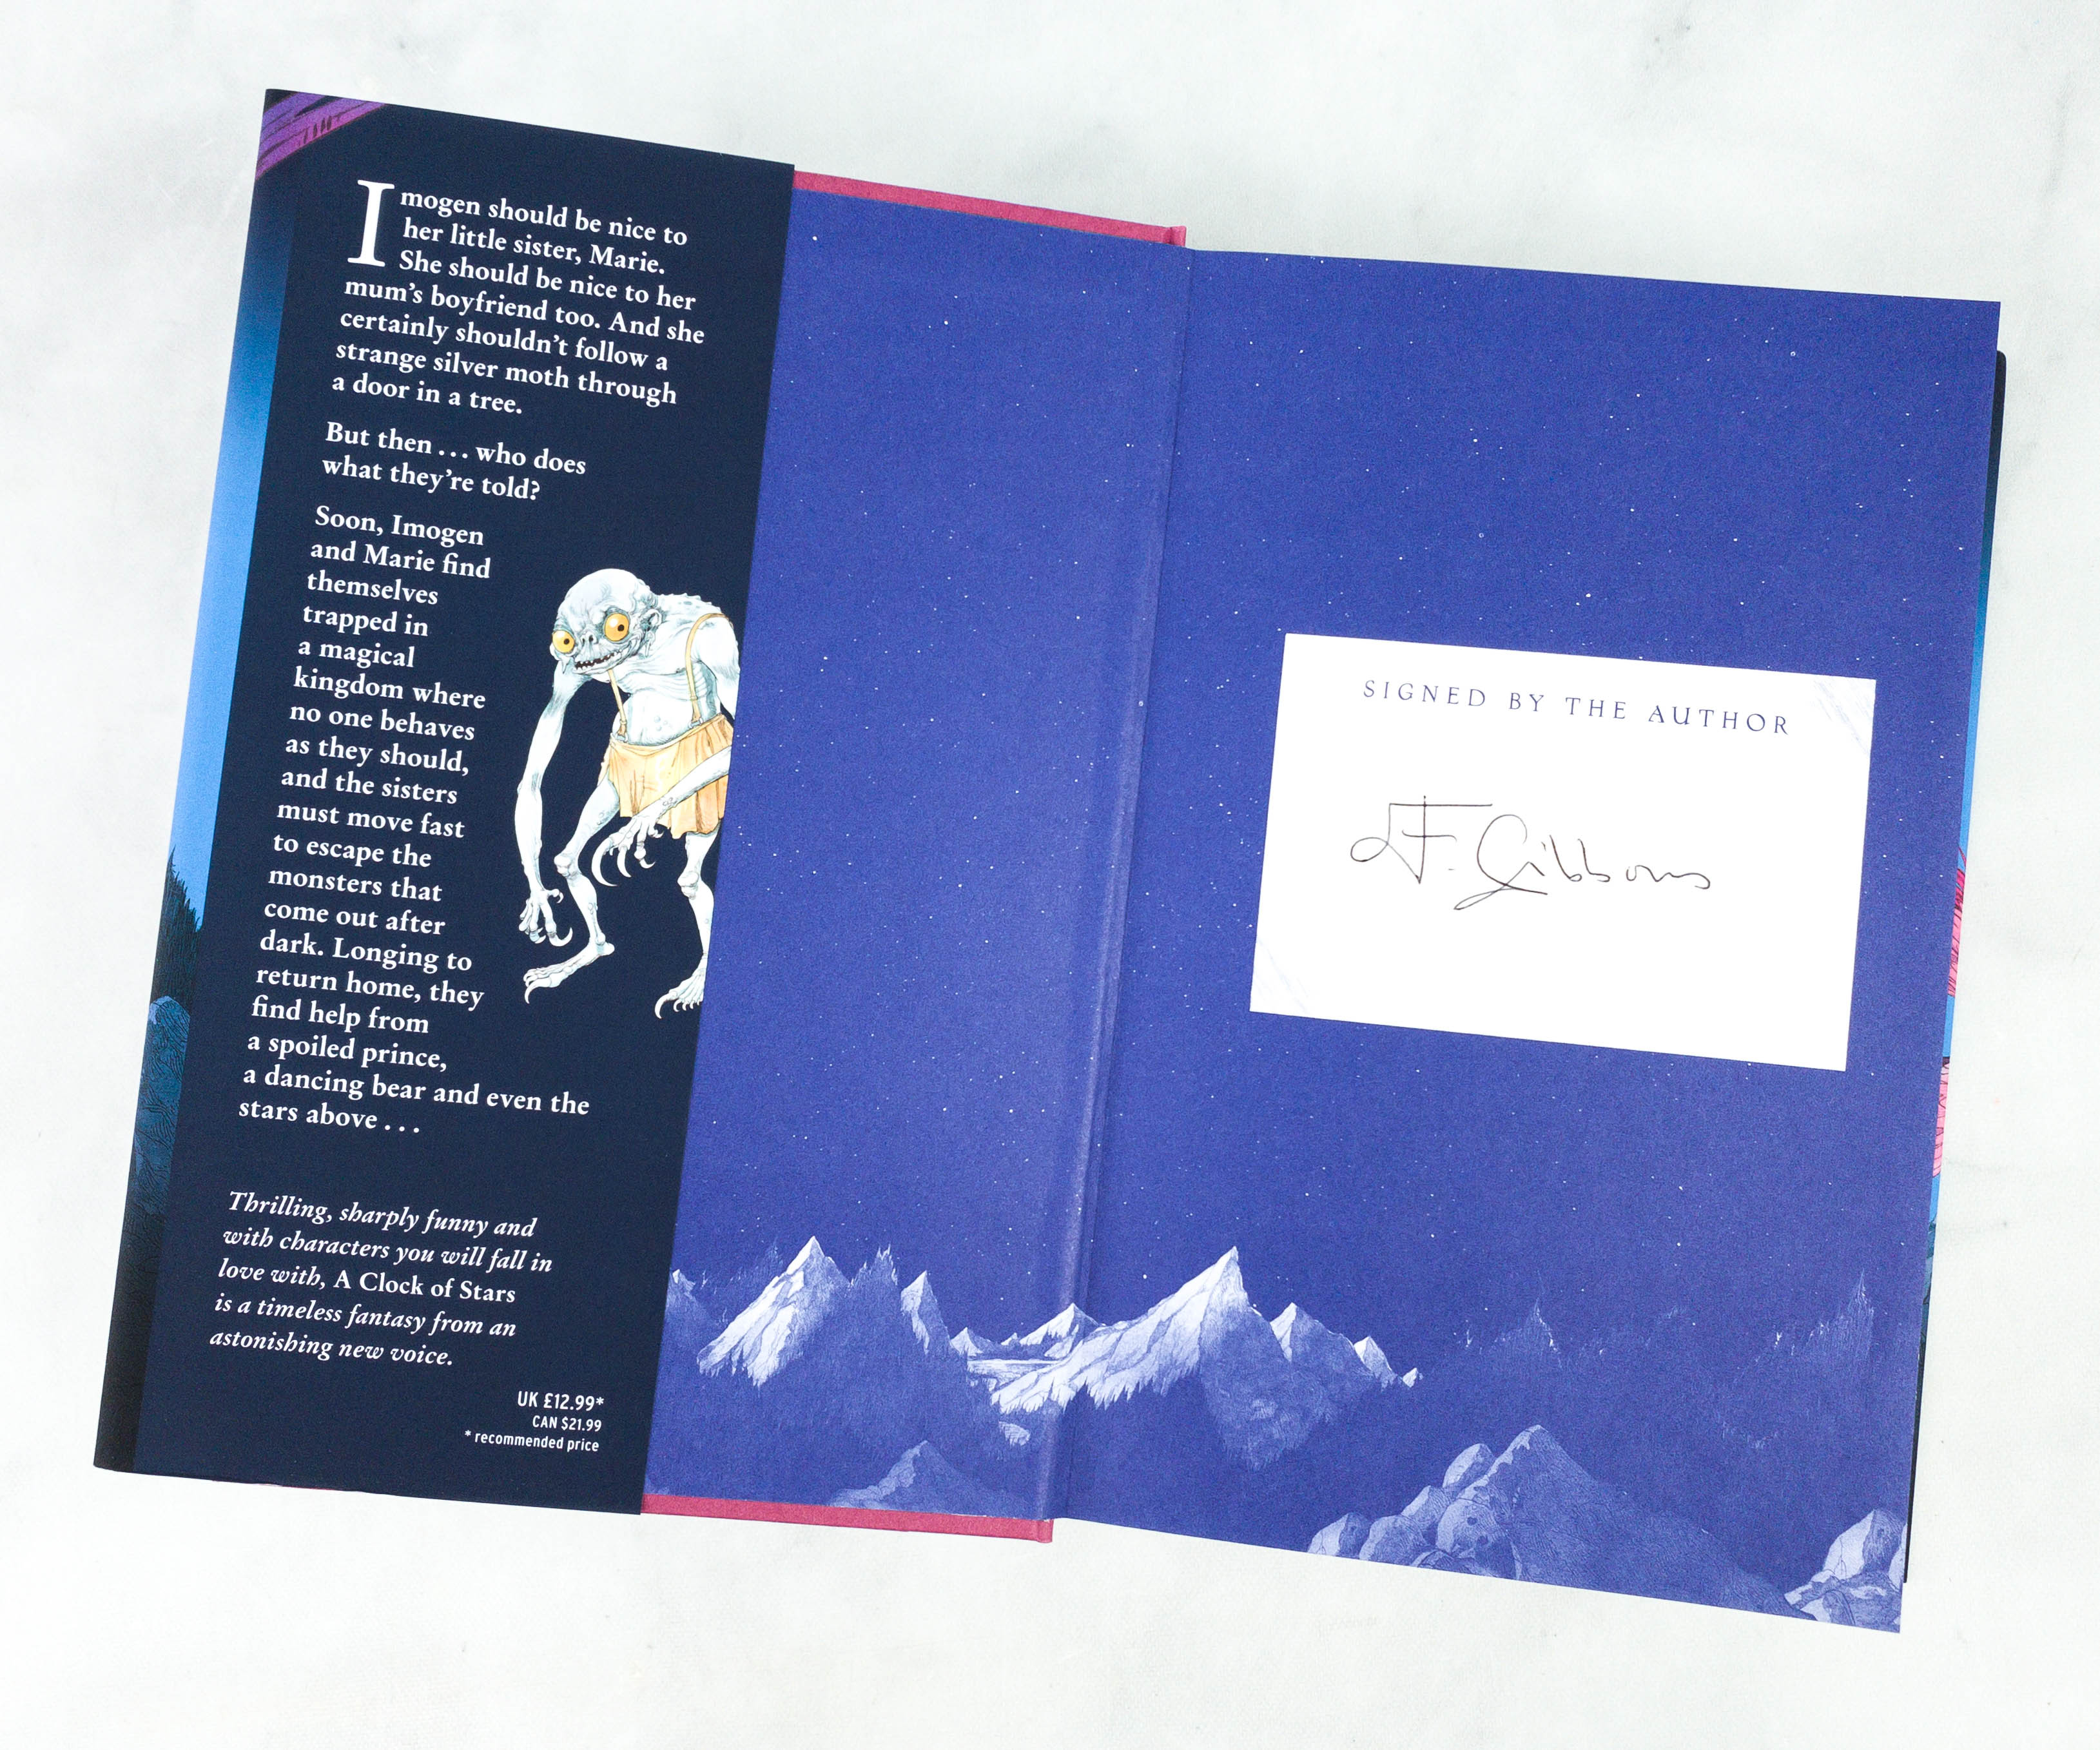 Imogen should be nice to
her little sister, Marie.
She should be nice to her
mum's boyfriend too. And she
certainly shouldn't follow a
strange silver moth through
a door in a tree.
But then ... who does
what they're told?
Soon, Imogen
and Marie find
themselves
trapped in
a magical
kingdom where
no one behaves
as they should,
and the sisters
must move fast
to escape the
monsters that
come out after
dark. Longing to
return home, they
find help from
a spoiled prince,
a dancing bear and even the
stars above ...
Thrilling, sharply funny and
with characters you will fall in
love with, A Clock of Stars
is a timeless fantasy from an
astonishing new voice.
UK £12.99*
CAN $21.99
* recommended price
SIGNED BY THE AUTHOR
F. Gibbons